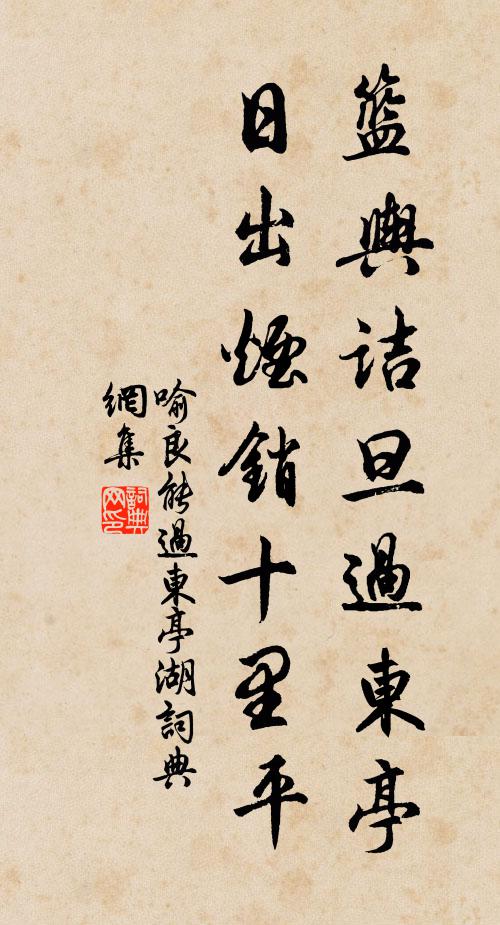 籃輿詰旦過東亭
日出煙銷十里平
喻良能過東亭湖詞典
網集
詞典
网印